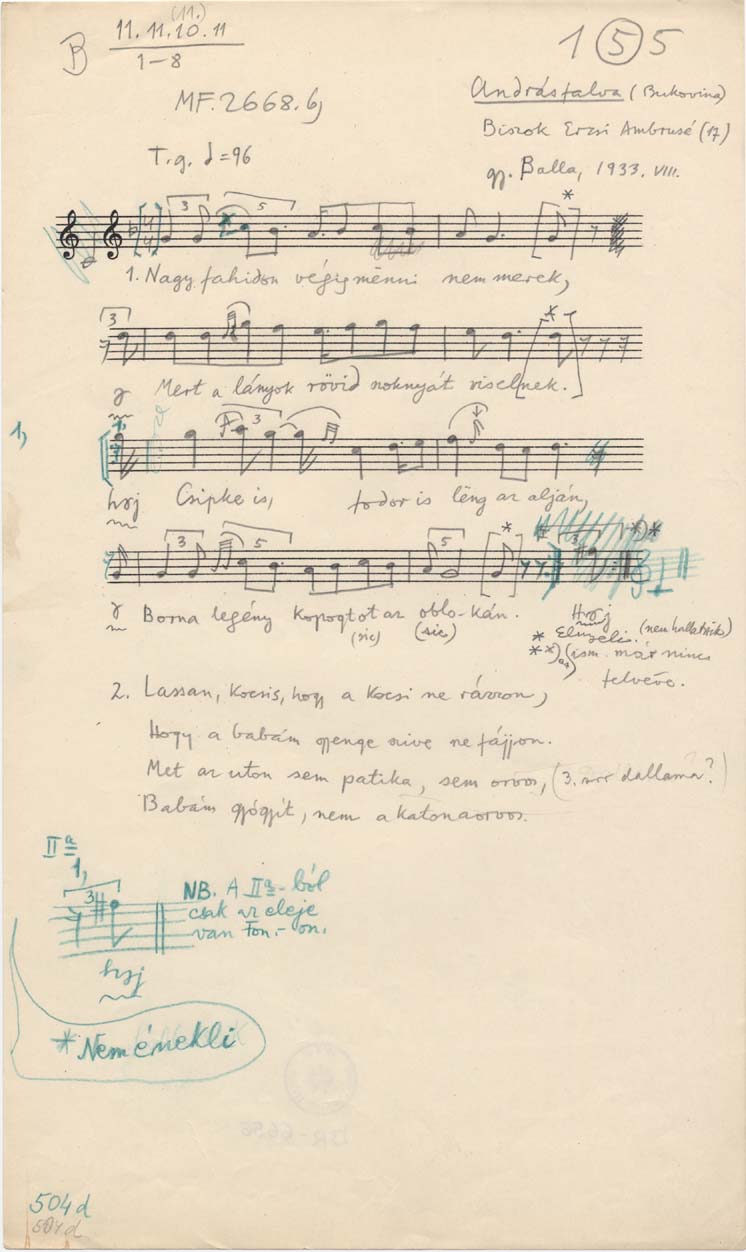 (11.)
B 11. 11. 10. 11
1-8
1 5 5
MF. 2668. b)
Andrásfalva (Bukovina)
Biszok Erzsi Ambrusé (17)
T.g. = 96
gy. Balla, 1933. VIII.
3 5 *
1. Nagy fahidon végig mënni nem merek,
3 *
Mert a lányok rövid szoknyát viselnek.
1, 3
1,
haj Csipke is, fodor is lëng az alján,
3 5 5 * *)*
Borna legény kopogtot az oblo-kán. Haj
(sic) (sic)
* Elnyeli. (nem hallatszik)
**) (az ism. már nincs
felvéve.
2. Lassan, kocsis, hogy a kocsi ne rázzon,
Hogy a babám gyenge szive ne fájjon.
Met az uton sem patika, sem orvos, (3. sor dallama?)
Babám gyógyít, nem a katonaorvos.
IIa
1,
3
NB. A IIa-ból
csak az eleje
van Fon.-on.
haj
* Nem énekli
DR-6656
504d
504d